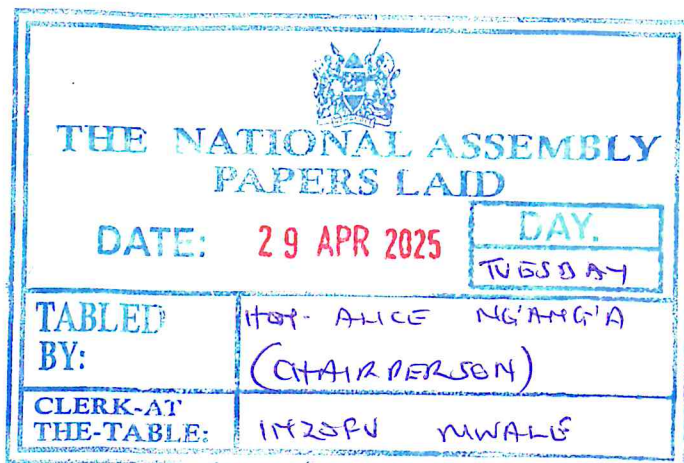 THE NATIONAL ASSEMBLY
PAPERS LAID
DATE: 29 APR 2025
DAY.
TUESDAY
TABLED BY:
HON. ALICE NG'ANG'A
(CHAIRPERSON)
CLERK-AT THE-TABLE:
INZOFU MWALE